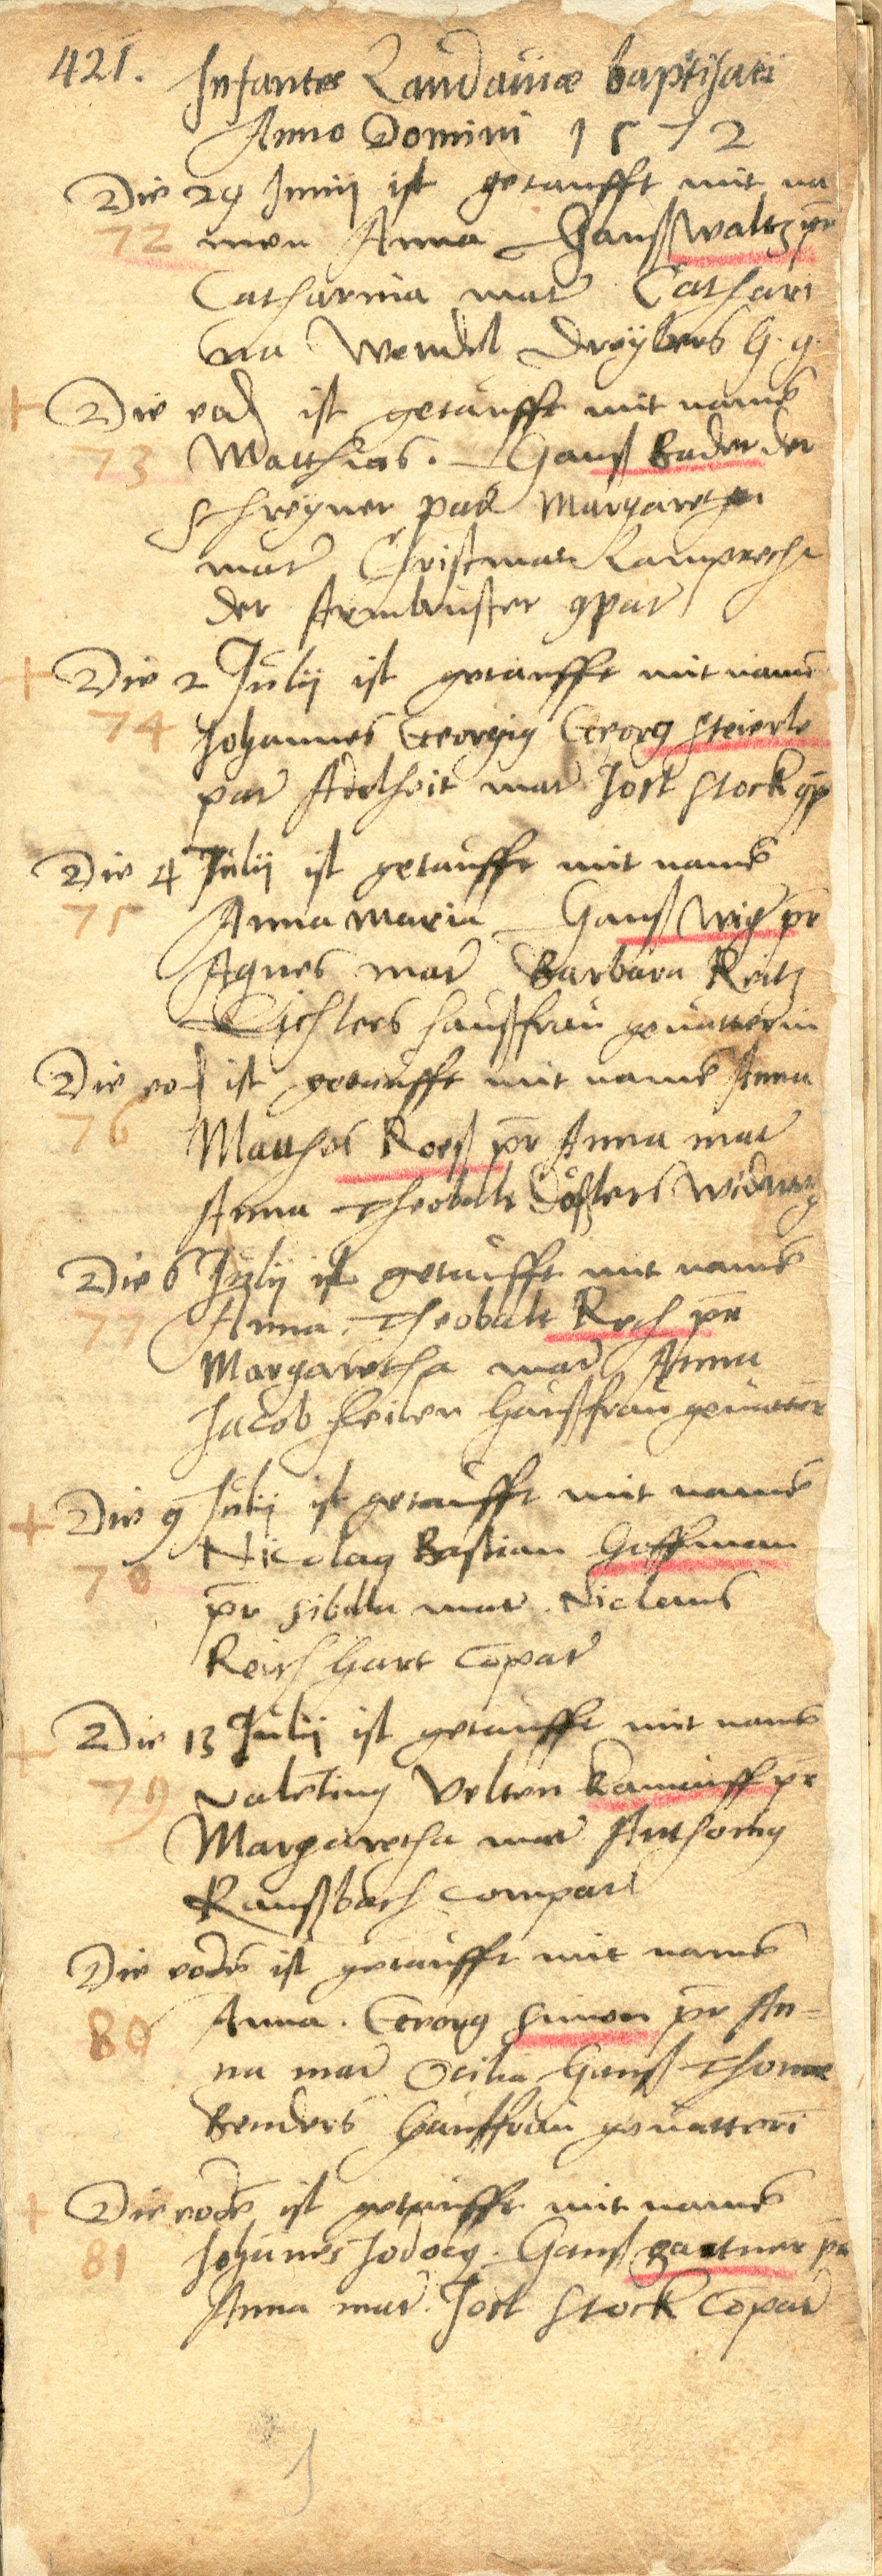 421. Infantes Landauiae baptisati
Anno Domini 1572
Die 29 Junij ist getaufft mit na
72 men Anna Hanß Waltz pr
Catharina mat Cathari
na Wendel Dreybers H. g.
Die eod ist getaufft mit name
73 Matthias. Hanß Bader der
schreyner pat Margaretha
mat Christman Lamprecht
der Armbruster gpat
Die 2 Julij ist getaufft mit name
74 Johannes Georgig Georg Steierle
pat Adelheit mat Jost Stock gp
Die 4 Julij ist getaufft mit name
75 Anna Maria Hanß Wig pr
Agnes mat Barbara Reitz
Richters haußfrau geuatterin
Die eod ist getaufft mit name Anna
76 Matthes Roeß pr Anna mat
Anna Theobalt
Die 6 Julij ist getaufft mit name
77 Anna. Theobalt Rech pr
Margaretha mat Anna
Jacob Feilen haußfrau geuatter
Die 9 Julij ist getaufft mit name
78 Nicolag Bastian Hoffman
pr Sibilla mat. Niclaus
Reichhart Copat
Die 13 Julij ist getaufft mit name
79 Valeting Velten pr
Margaretha mat Anthonig
Ranßbach Compat
Die eode ist getaufft mit name
80 Anna. Georg Simon pr An=
na mat Ocilia Hanß Thomae
Benders haußfrau geuatteri
Die eode ist getaufft mit name
81 Johanes Jodocg. Hanß gartner pr
Anna mat. Jost Stock Copat